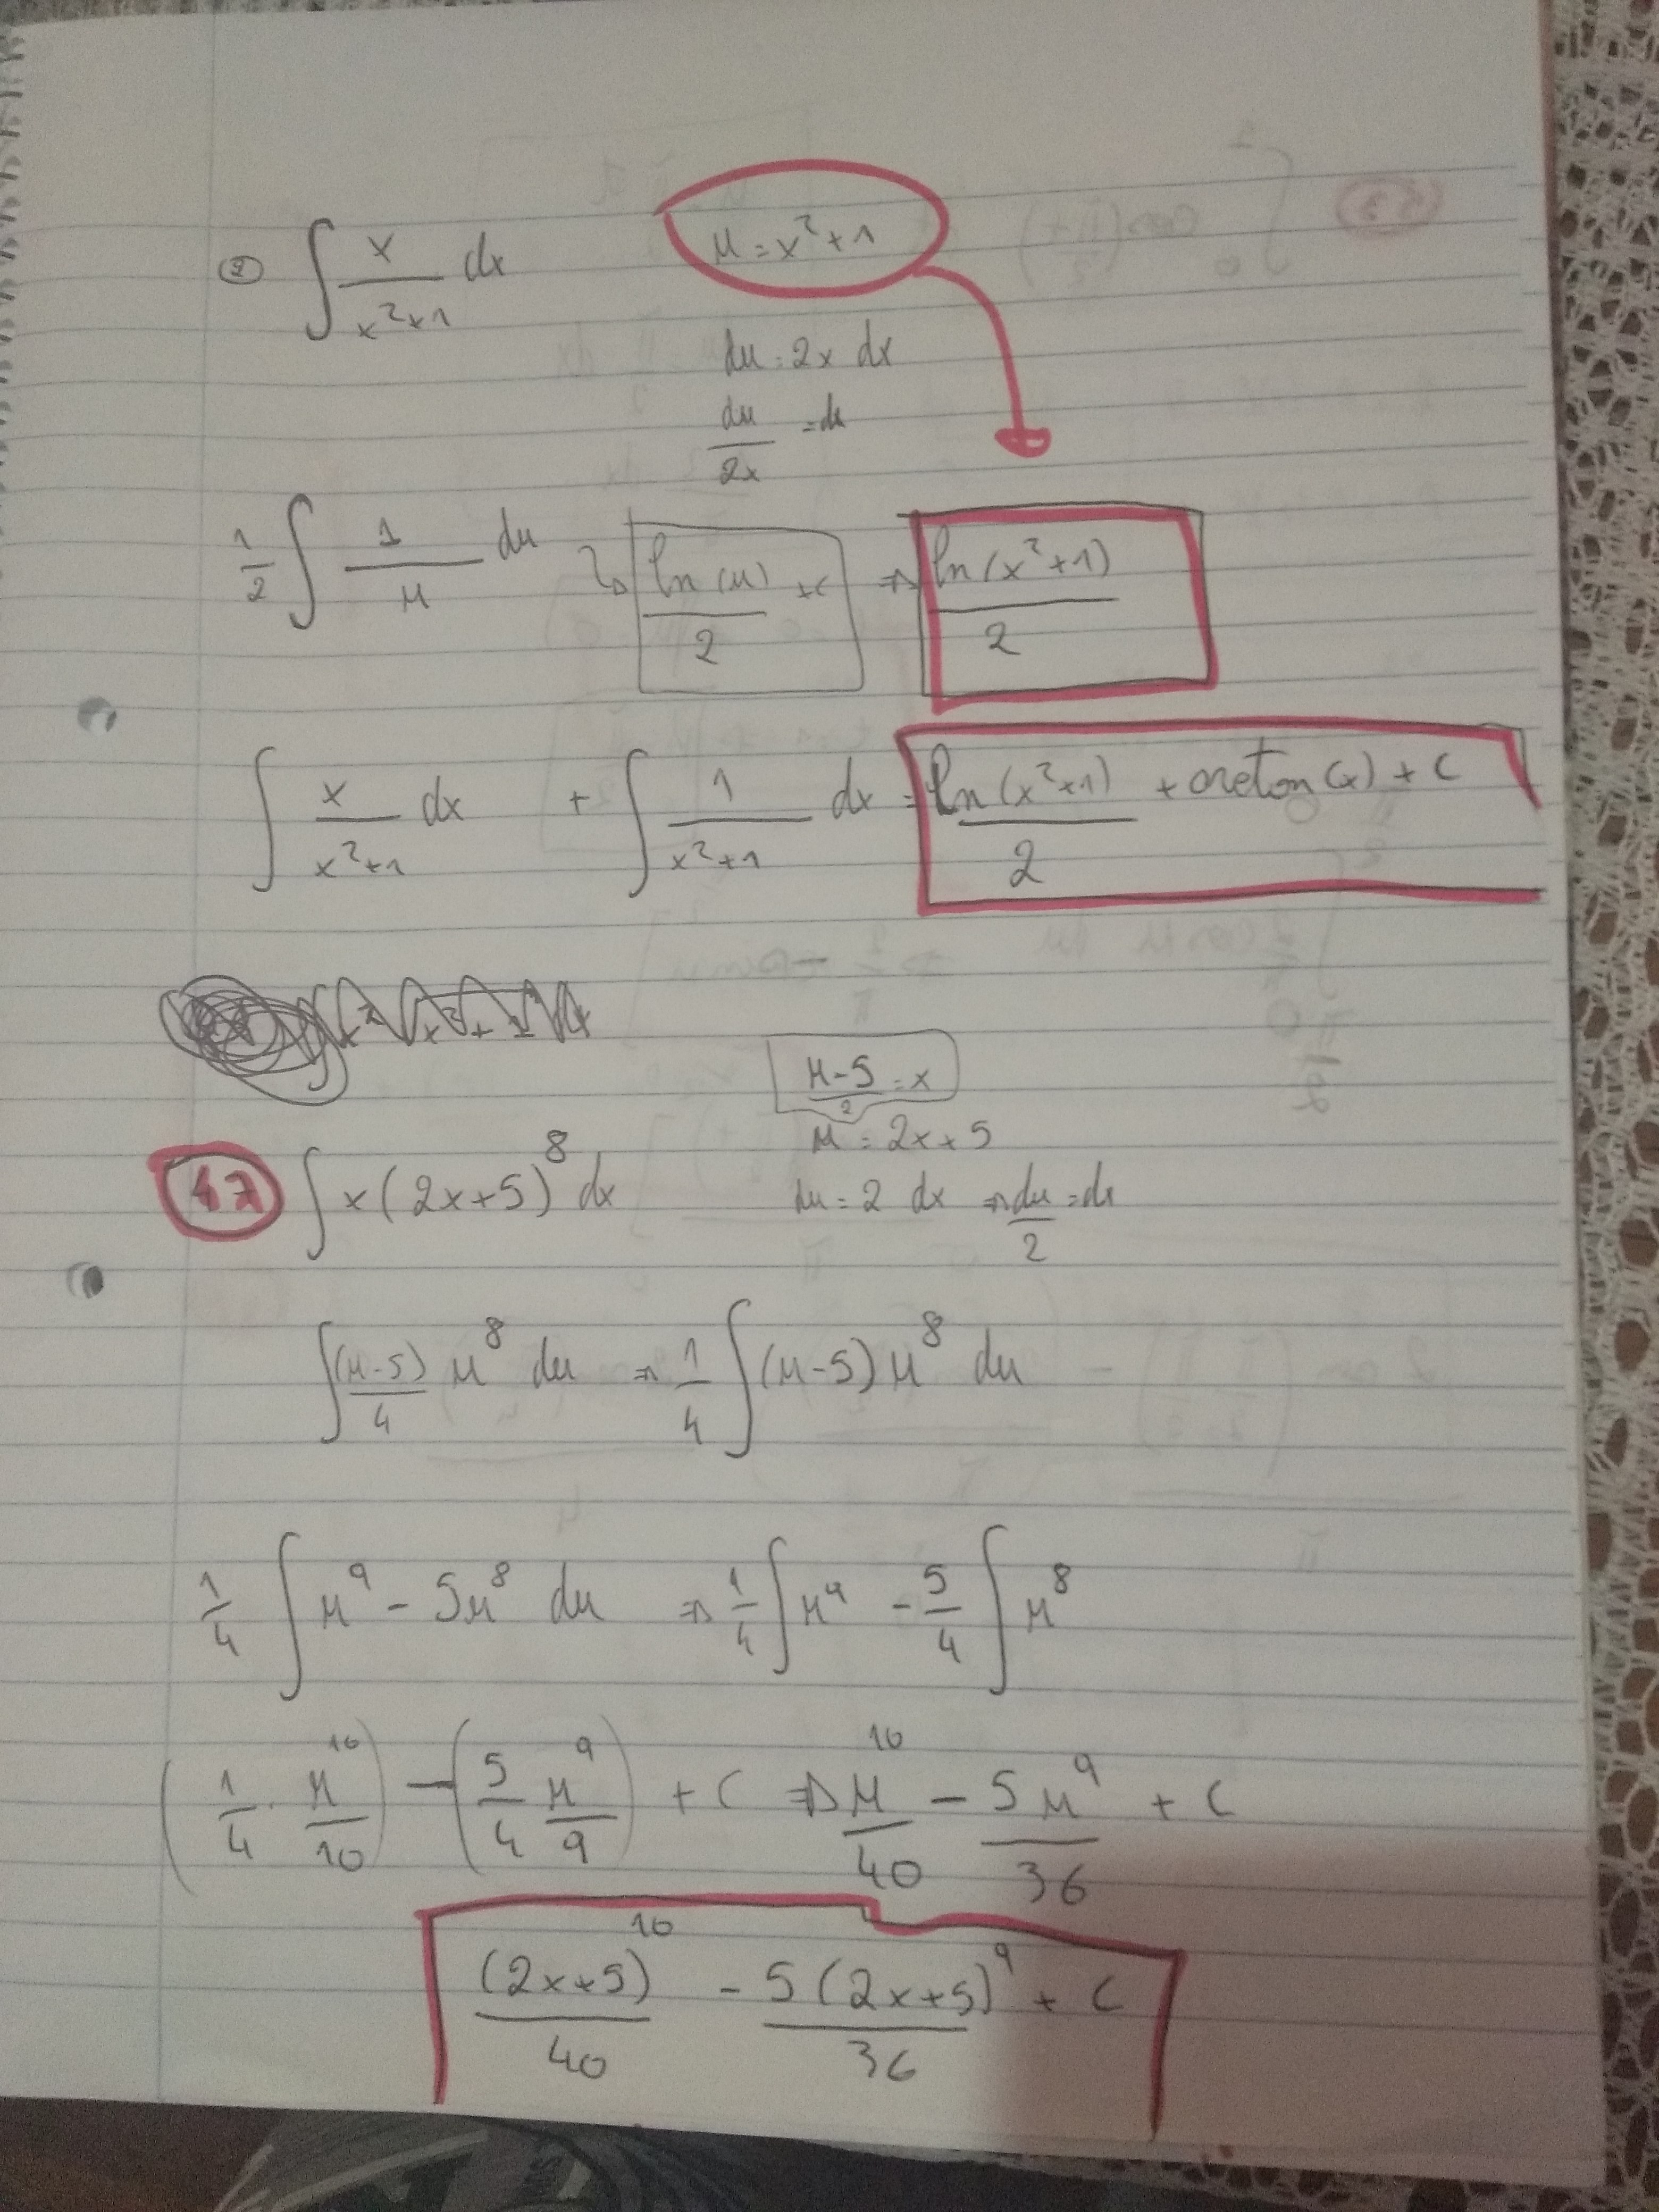 ② ∫ x/(x²+1) dx   μ = x²+1
du = 2x dx
du/2x = dx
1/2 ∫ 1/μ du → ln(μ)/2 + c ⇒ ln(x²+1)/2
∫ x/(x²+1) dx + ∫ 1/(x²+1) dx = ln(x²+1)/2 + arctan(x) + C
(μ-5)/2 = x
μ = 2x+5
47 ∫ x(2x+5)⁸ dx   du = 2 dx ⇒ du/2 = dx
∫ (μ-5)/4 μ⁸ du ⇒ 1/4 ∫ (μ-5) μ⁸ du
1/4 ∫ μ⁹ - 5μ⁸ du ⇒ 1/4 ∫ μ⁹ - 5/4 ∫ μ⁸
(1/4 · μ¹⁰/10) - (5/4 μ⁹/9) + C ⇒ μ¹⁰/40 - 5μ⁹/36 + C
(2x+5)¹⁰/40 - 5(2x+5)⁹/36 + C